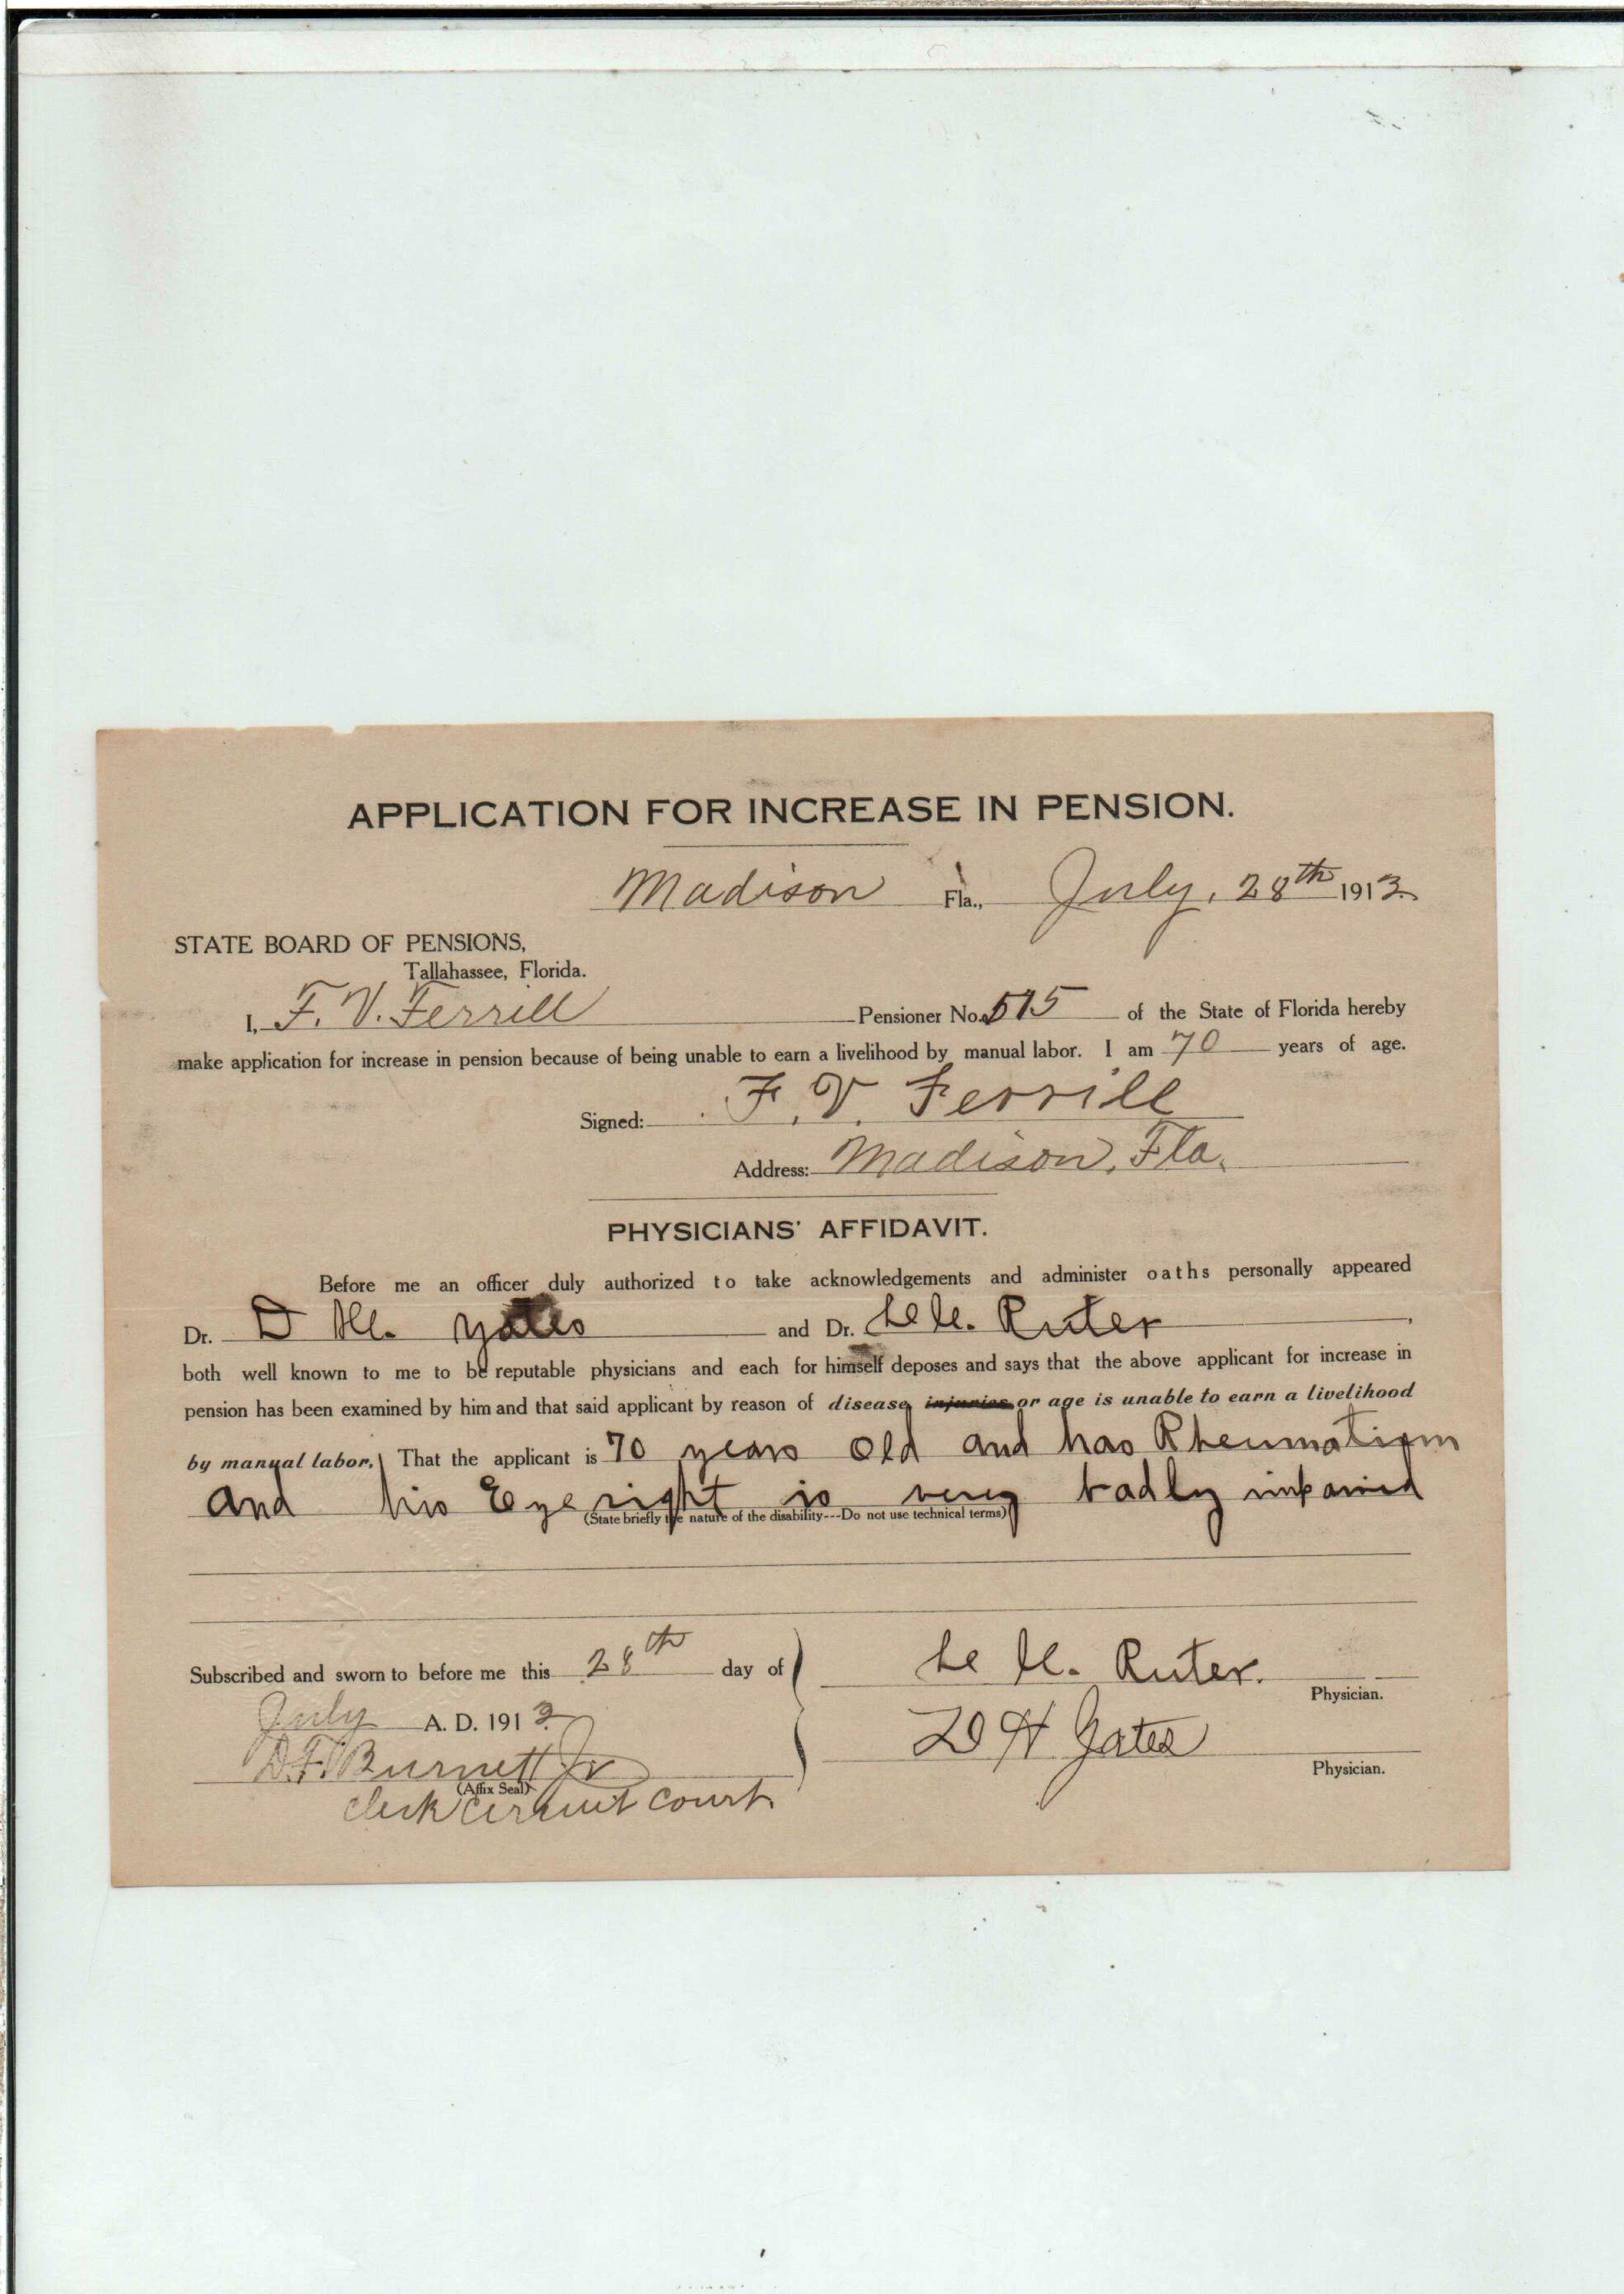 APPLICATION FOR INCREASE IN PENSION.
Madison Fla., July, 28th 1913.
STATE BOARD OF PENSIONS,
Tallahassee, Florida.
I, F. V. Ferrill Pensioner No. 515 of the State of Florida hereby
make application for increase in pension because of being unable to earn a livelihood by manual labor. I am 70 years of age.
Signed: F. V. Ferrill
Address: Madison, Fla.
PHYSICIANS' AFFIDAVIT.
Before me an officer duly authorized to take acknowledgements and administer oaths personally appeared
Dr. D H. Yates and Dr. Ruter
both well known to me to be reputable physicians and each for himself deposes and says that the above applicant for increase in
pension has been examined by him and that said applicant by reason of disease, injuries or age is unable to earn a livelihood
by manual labor. That the applicant is 70 years old and has Rheumatism
and his Eye sight is very badly impaired
(State briefly the nature of the disability---Do not use technical terms)
Subscribed and sworn to before me this 28th day of
July A. D. 1913
D. F. Burnett Jr
(Affix Seal)
Clerk Circuit Court
Ruter.
Physician.
D H Yates
Physician.